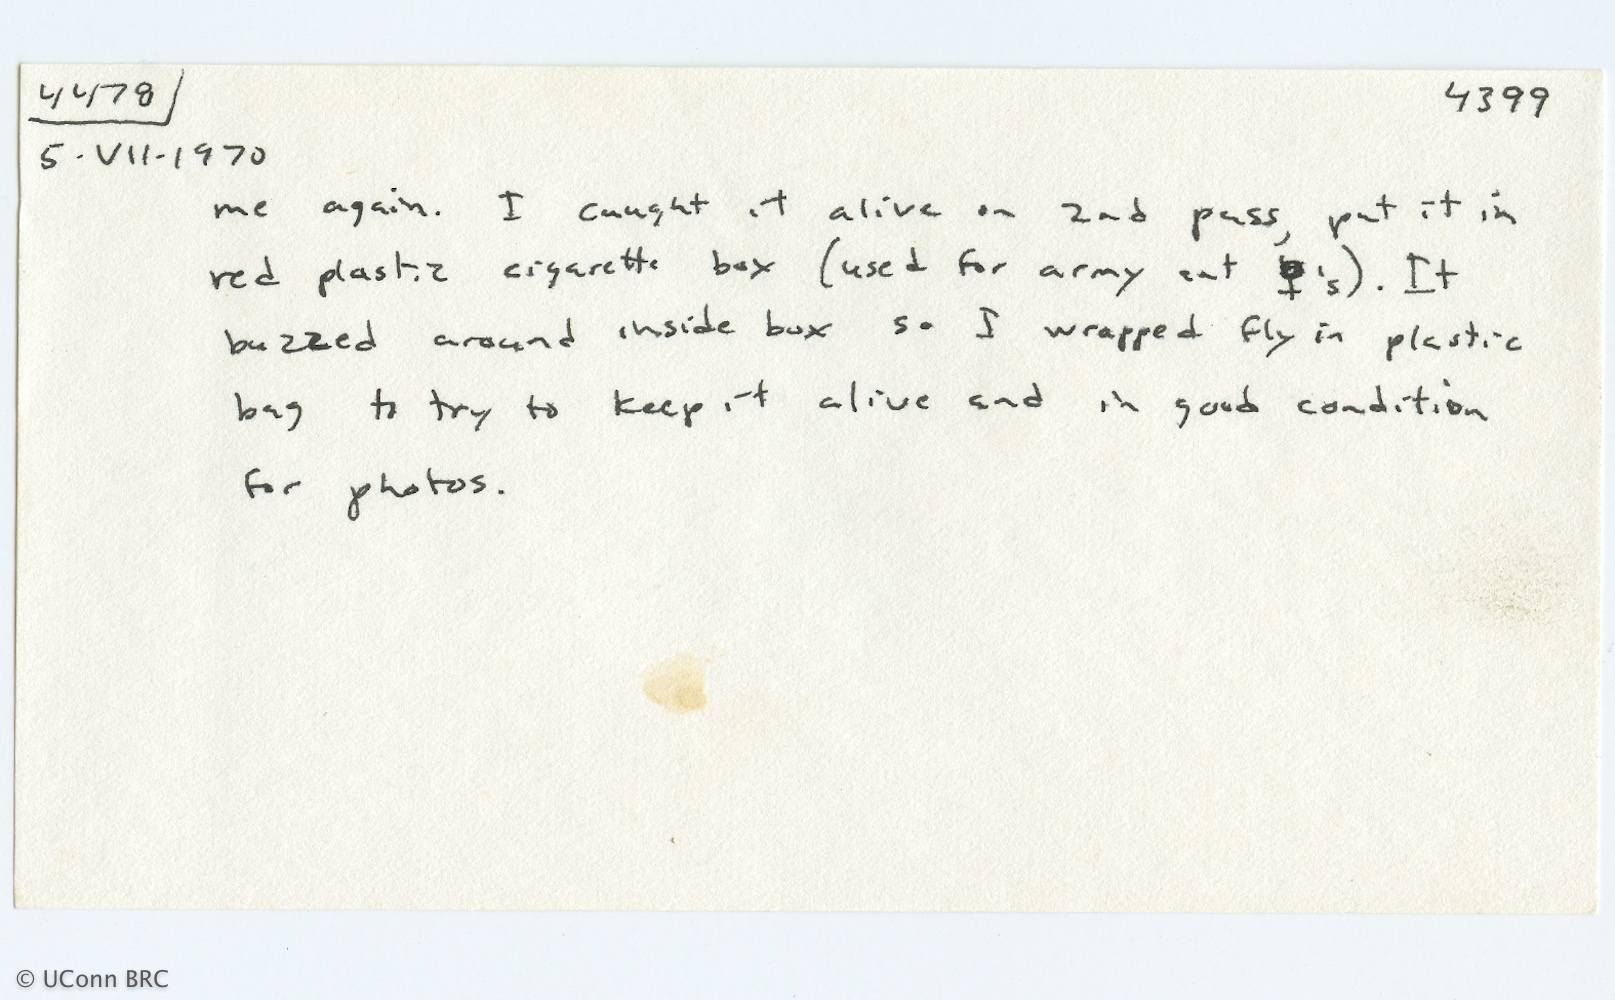 4478 4399
5·VII·1970
me again. I caught it alive on 2nd pass, put it in
red plastic cigarette box (used for army ant ♀'s). It
buzzed around inside box so I wrapped fly in plastic
bag to try to keep it alive and in good condition
for photos.
© UConn BRC